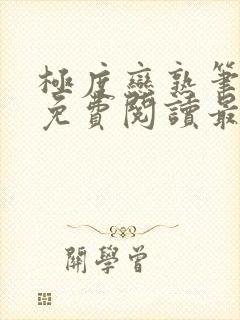 極度戀熟筆
免費閱讀最
開學曾